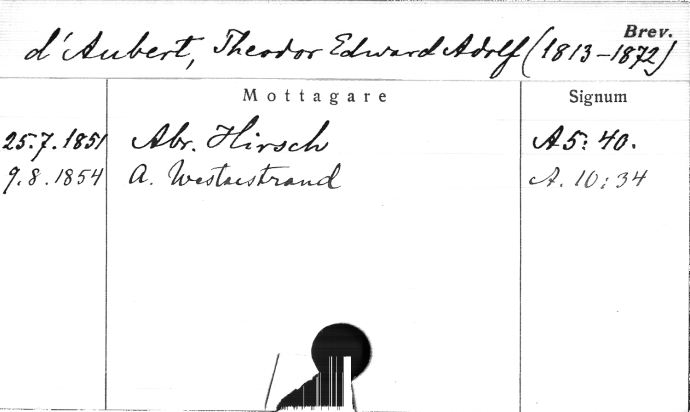 Brev.
d'Aubert, Theodor Edward Adolf (1813-1872)
Mottagare Signum
25.7.1851 Abr. Hirsch A5: 40.
9.8.1854 A. Westaestrand A. 10: 34